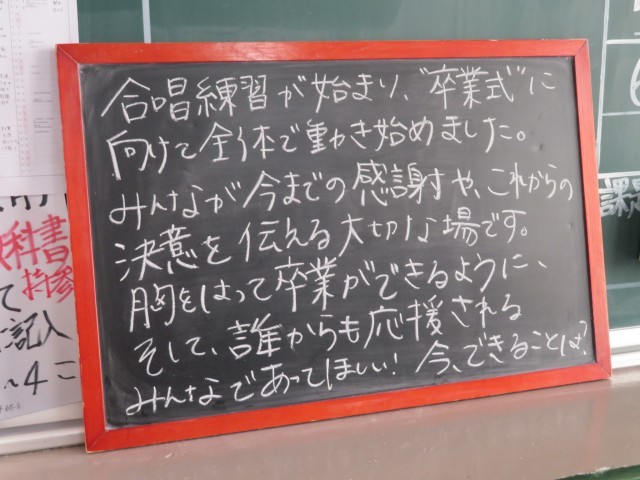 合唱練習が始まり、"卒業式"に
向けて全体で動き始めました。
みんなが今までの感謝や、これからの
決意を伝える大切な場です。
胸をはって卒業ができるように、
そして、誰からも応援される
みんなであってほしい！ 今、できることは？
科書
持参
て
記入
～4
課題